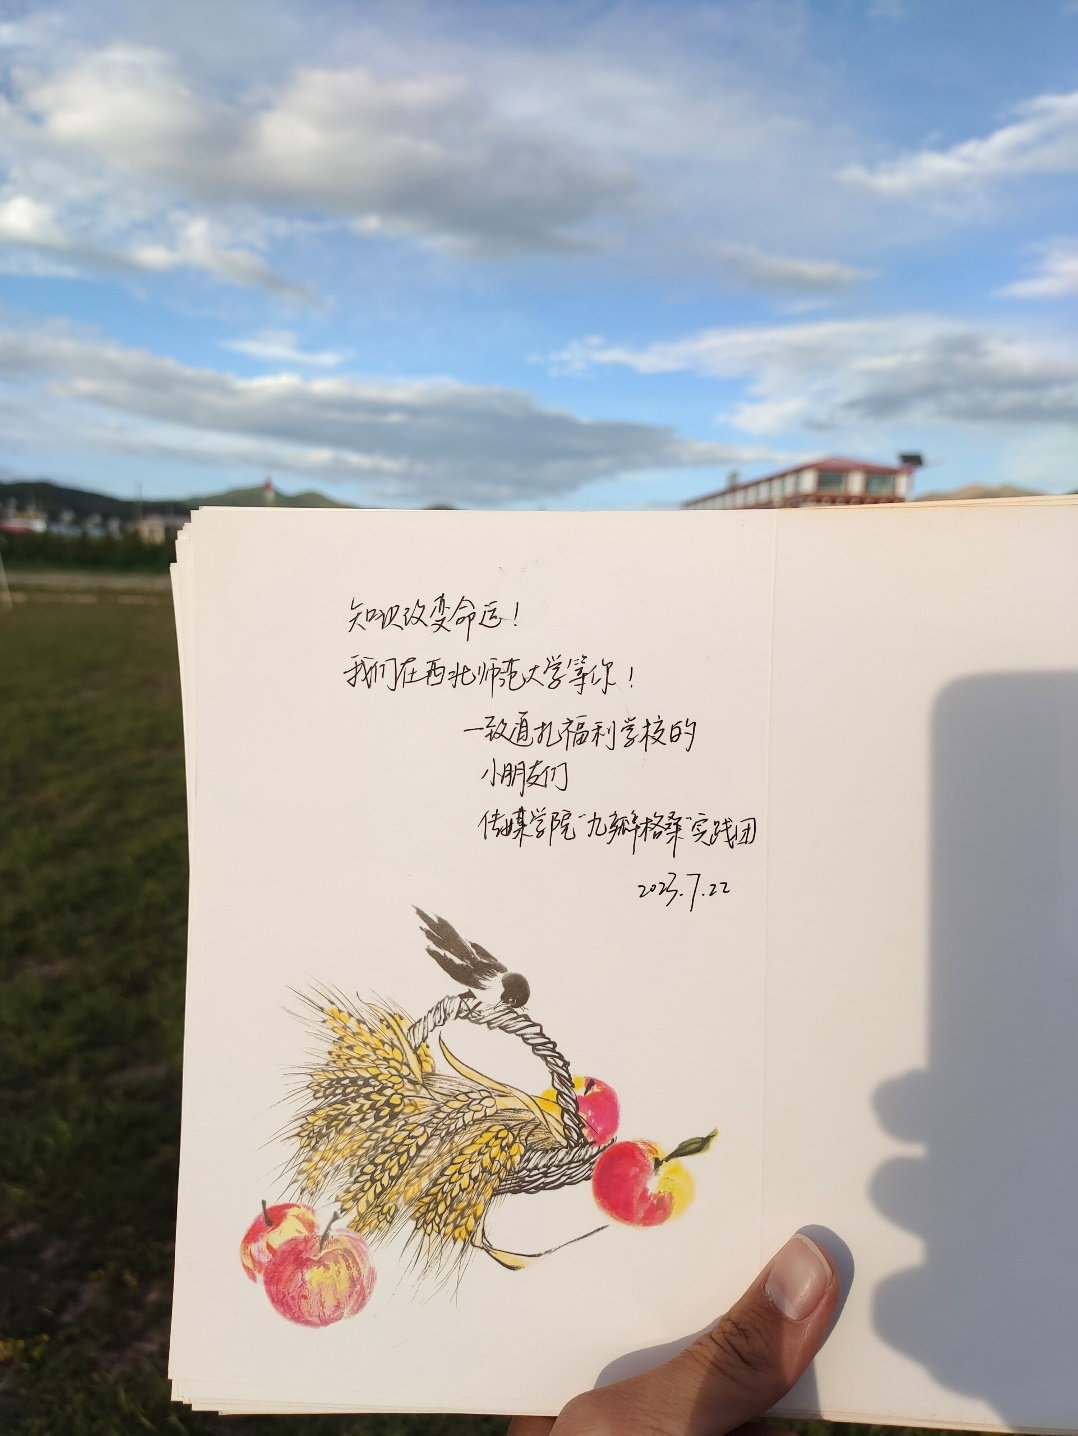 知识改变命运！
我们在西北师范大学等你！
一致道扎福利学校的
小朋友们
传媒学院“九瓣格桑”实践团
2023.7.22